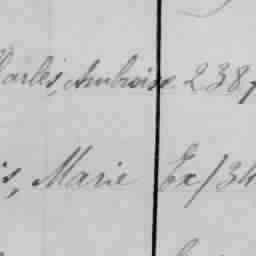 Charles, Ambroise 2387
s, Marie Ex/34